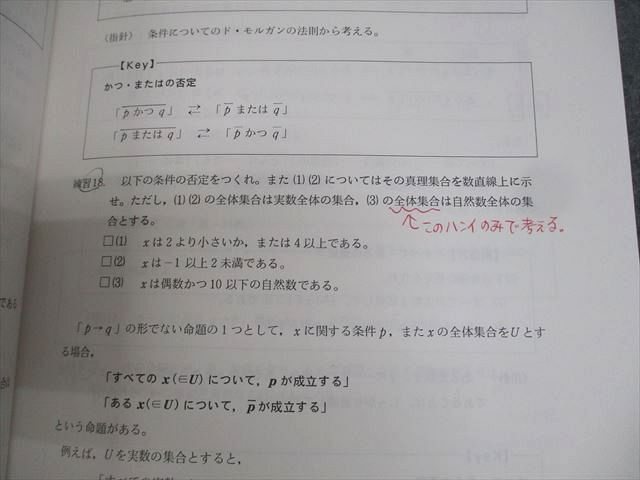 （指針） 条件についてのド・モルガンの法則から考える。
【Key】
かつ・またはの否定
「p̅ かつ q̅」 ⇄ 「p̅ または q̅」
「p̅ または q̅」 ⇄ 「p̅ かつ q̅」
練習18. 以下の条件の否定をつくれ。また(1)(2)についてはその真理集合を数直線上に示
せ。ただし，(1)(2)の全体集合は実数全体の集合，(3)の全体集合は自然数全体の集
合とする。
↑このハンイのみで考える。
□(1) xは2より小さいか，または4以上である。
□(2) xは−1以上2未満である。
□(3) xは偶数かつ10以下の自然数である。
「p→q」の形でない命題の1つとして，xに関する条件p，またxの全体集合をUとす
る場合，
「すべてのx(∈U)について，pが成立する」
「あるx(∈U)について，p̅が成立する」
という命題がある。
例えば，Uを実数の集合とすると，